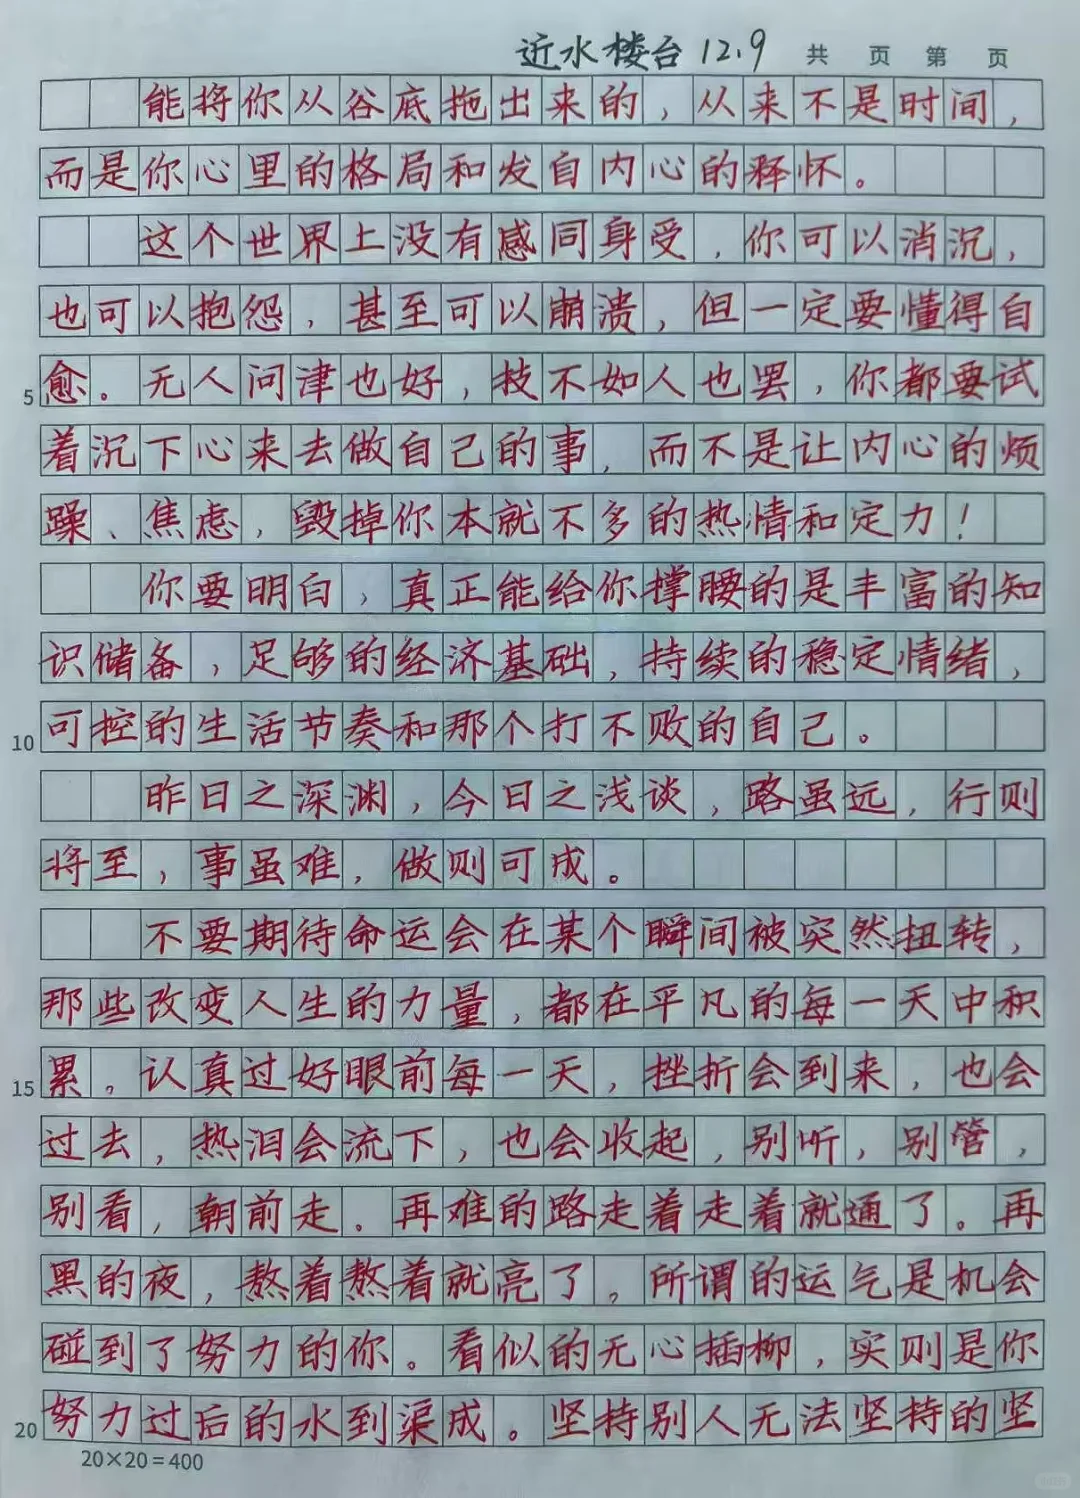 近水楼台 12.9 共 页 第 页
能将你从谷底拖出来的，从来不是时间，
而是你心里的格局和发自内心的释怀。
这个世界上没有感同身受，你可以消沉，
也可以抱怨，甚至可以崩溃，但一定要懂得自
5 愈。无人问津也好，技不如人也罢，你都要试
着沉下心来去做自己的事，而不是让内心的烦
躁、焦虑，毁掉你本就不多的热情和定力！
你要明白，真正能给你撑腰的是丰富的知
识储备，足够的经济基础，持续的稳定情绪，
10 可控的生活节奏和那个打不败的自己。
昨日之深渊，今日之浅谈，路虽远，行则
将至，事虽难，做则可成。
不要期待命运会在某个瞬间被突然扭转，
那些改变人生的力量，都在平凡的每一天中积
15 累。认真过好眼前每一天，挫折会到来，也会
过去，热泪会流下，也会收起，别听，别管，
别看，朝前走。再难的路走着走着就通了。再
黑的夜，熬着熬着就亮了。所谓的运气是机会
碰到了努力的你。看似的无心插柳，实则是你
20 努力过后的水到渠成。坚持别人无法坚持的坚
20×20=400